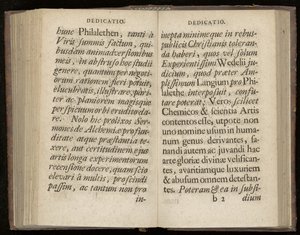 DEDICATIO.
hunc Philalethen, tanti à
Viris summis factum, qui-
busdam animadversionibus
meis, in abstruso hoc studii
genere, quantum per negoti-
orum rationem fieri poterat,
elucubratis, illustrare, pari-
ter ac planiorem magisque
perspicuum orbi erudito da-
re. Nolo hic prolixus Ser-
mones de Alchemiæ profun-
ditate atque præstantia te-
xere, aut certitudinem ejus
artis longa experimentorum
recensione docere, quam scio
elevari à multis, proscindi
passim, ac tantum non pro
in-
DEDICATIO.
inepta minimeque in rebus-
publicis Christianis toleran-
da haberi, quos vel solum
Experientissimi Wedelii ju-
dicium, quod præter Am-
plissimum Langium pro Phi-
lalethe interposuit, confu-
tare poterat; Veros scilicet
Chemicos & scientia Artis
contentos esse, utpote non
uno nomine usum in huma-
num genus derivantes, sa-
nandi autem ac juvandi hac
arte gloriæ divinæ velifican-
tes, avaritiamque luxuriem
& abusum omnem detestan-
tes. Poteram & ea in subsi-
b 2 dium